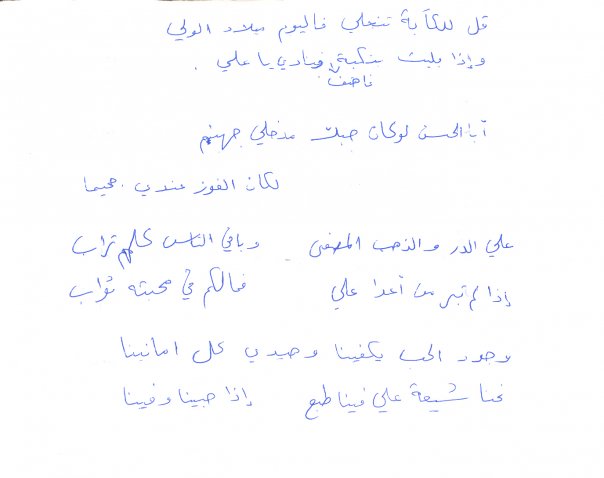 قل للكآبة تنجلي فاليوم ميلاد الولي
وإذا بليت بنكبة فنادي يا علي .
ناصف
أبا الحسن لو كان حبك مدخلي جهنم
لكان الفوز عندي جحيما
علي الدر والذهب المصفى وباقي الناس كلهم تراب
إذا لم تبر من أعدا علي فمالكم في محبته ثواب
وجود الحب يكفينا وحيدي كل امانينا
نحنا شيعة علي فينا طبع إذا حبينا وفينا